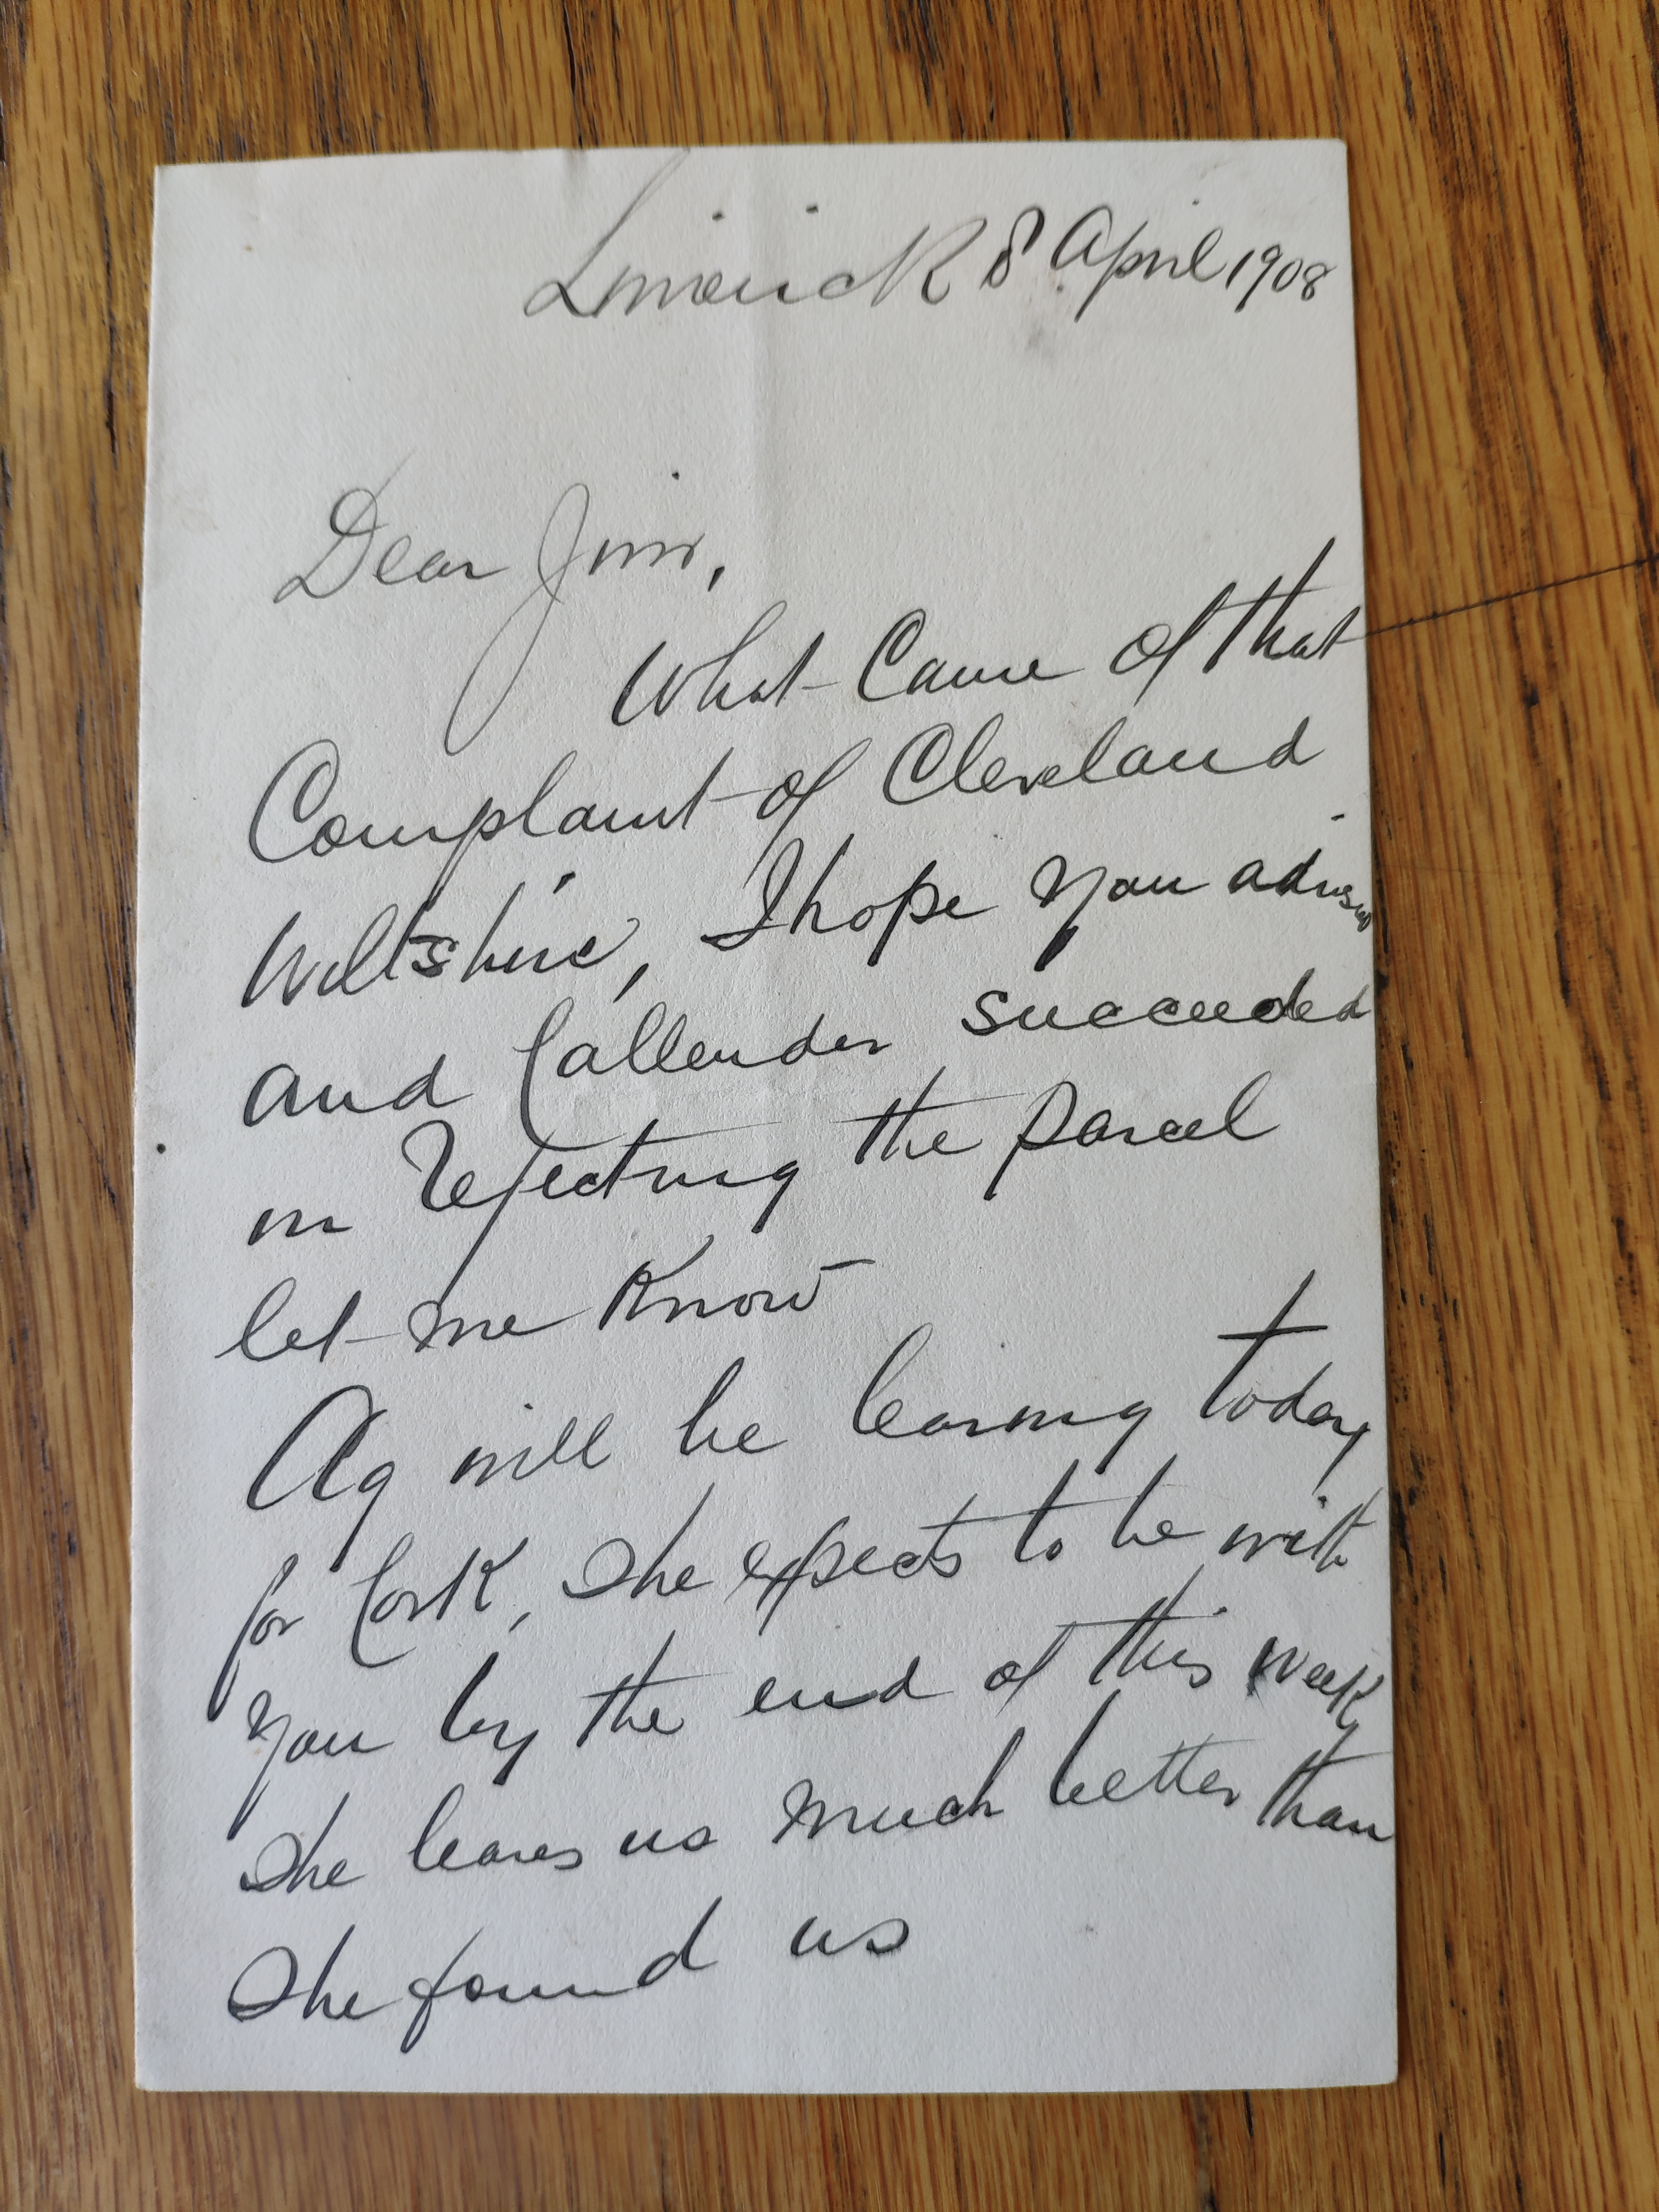 Limerick 8 April 1908
Dear Jim,
What Came of that
Complaint of Cleveland
Wiltshire, I hope you advised
and Callender succeeded
in rejecting the parcel
let me Know
Ag will be leaving today
for Cork, she expects to be with
you by the end of this week
She leaves us much better than
She found us